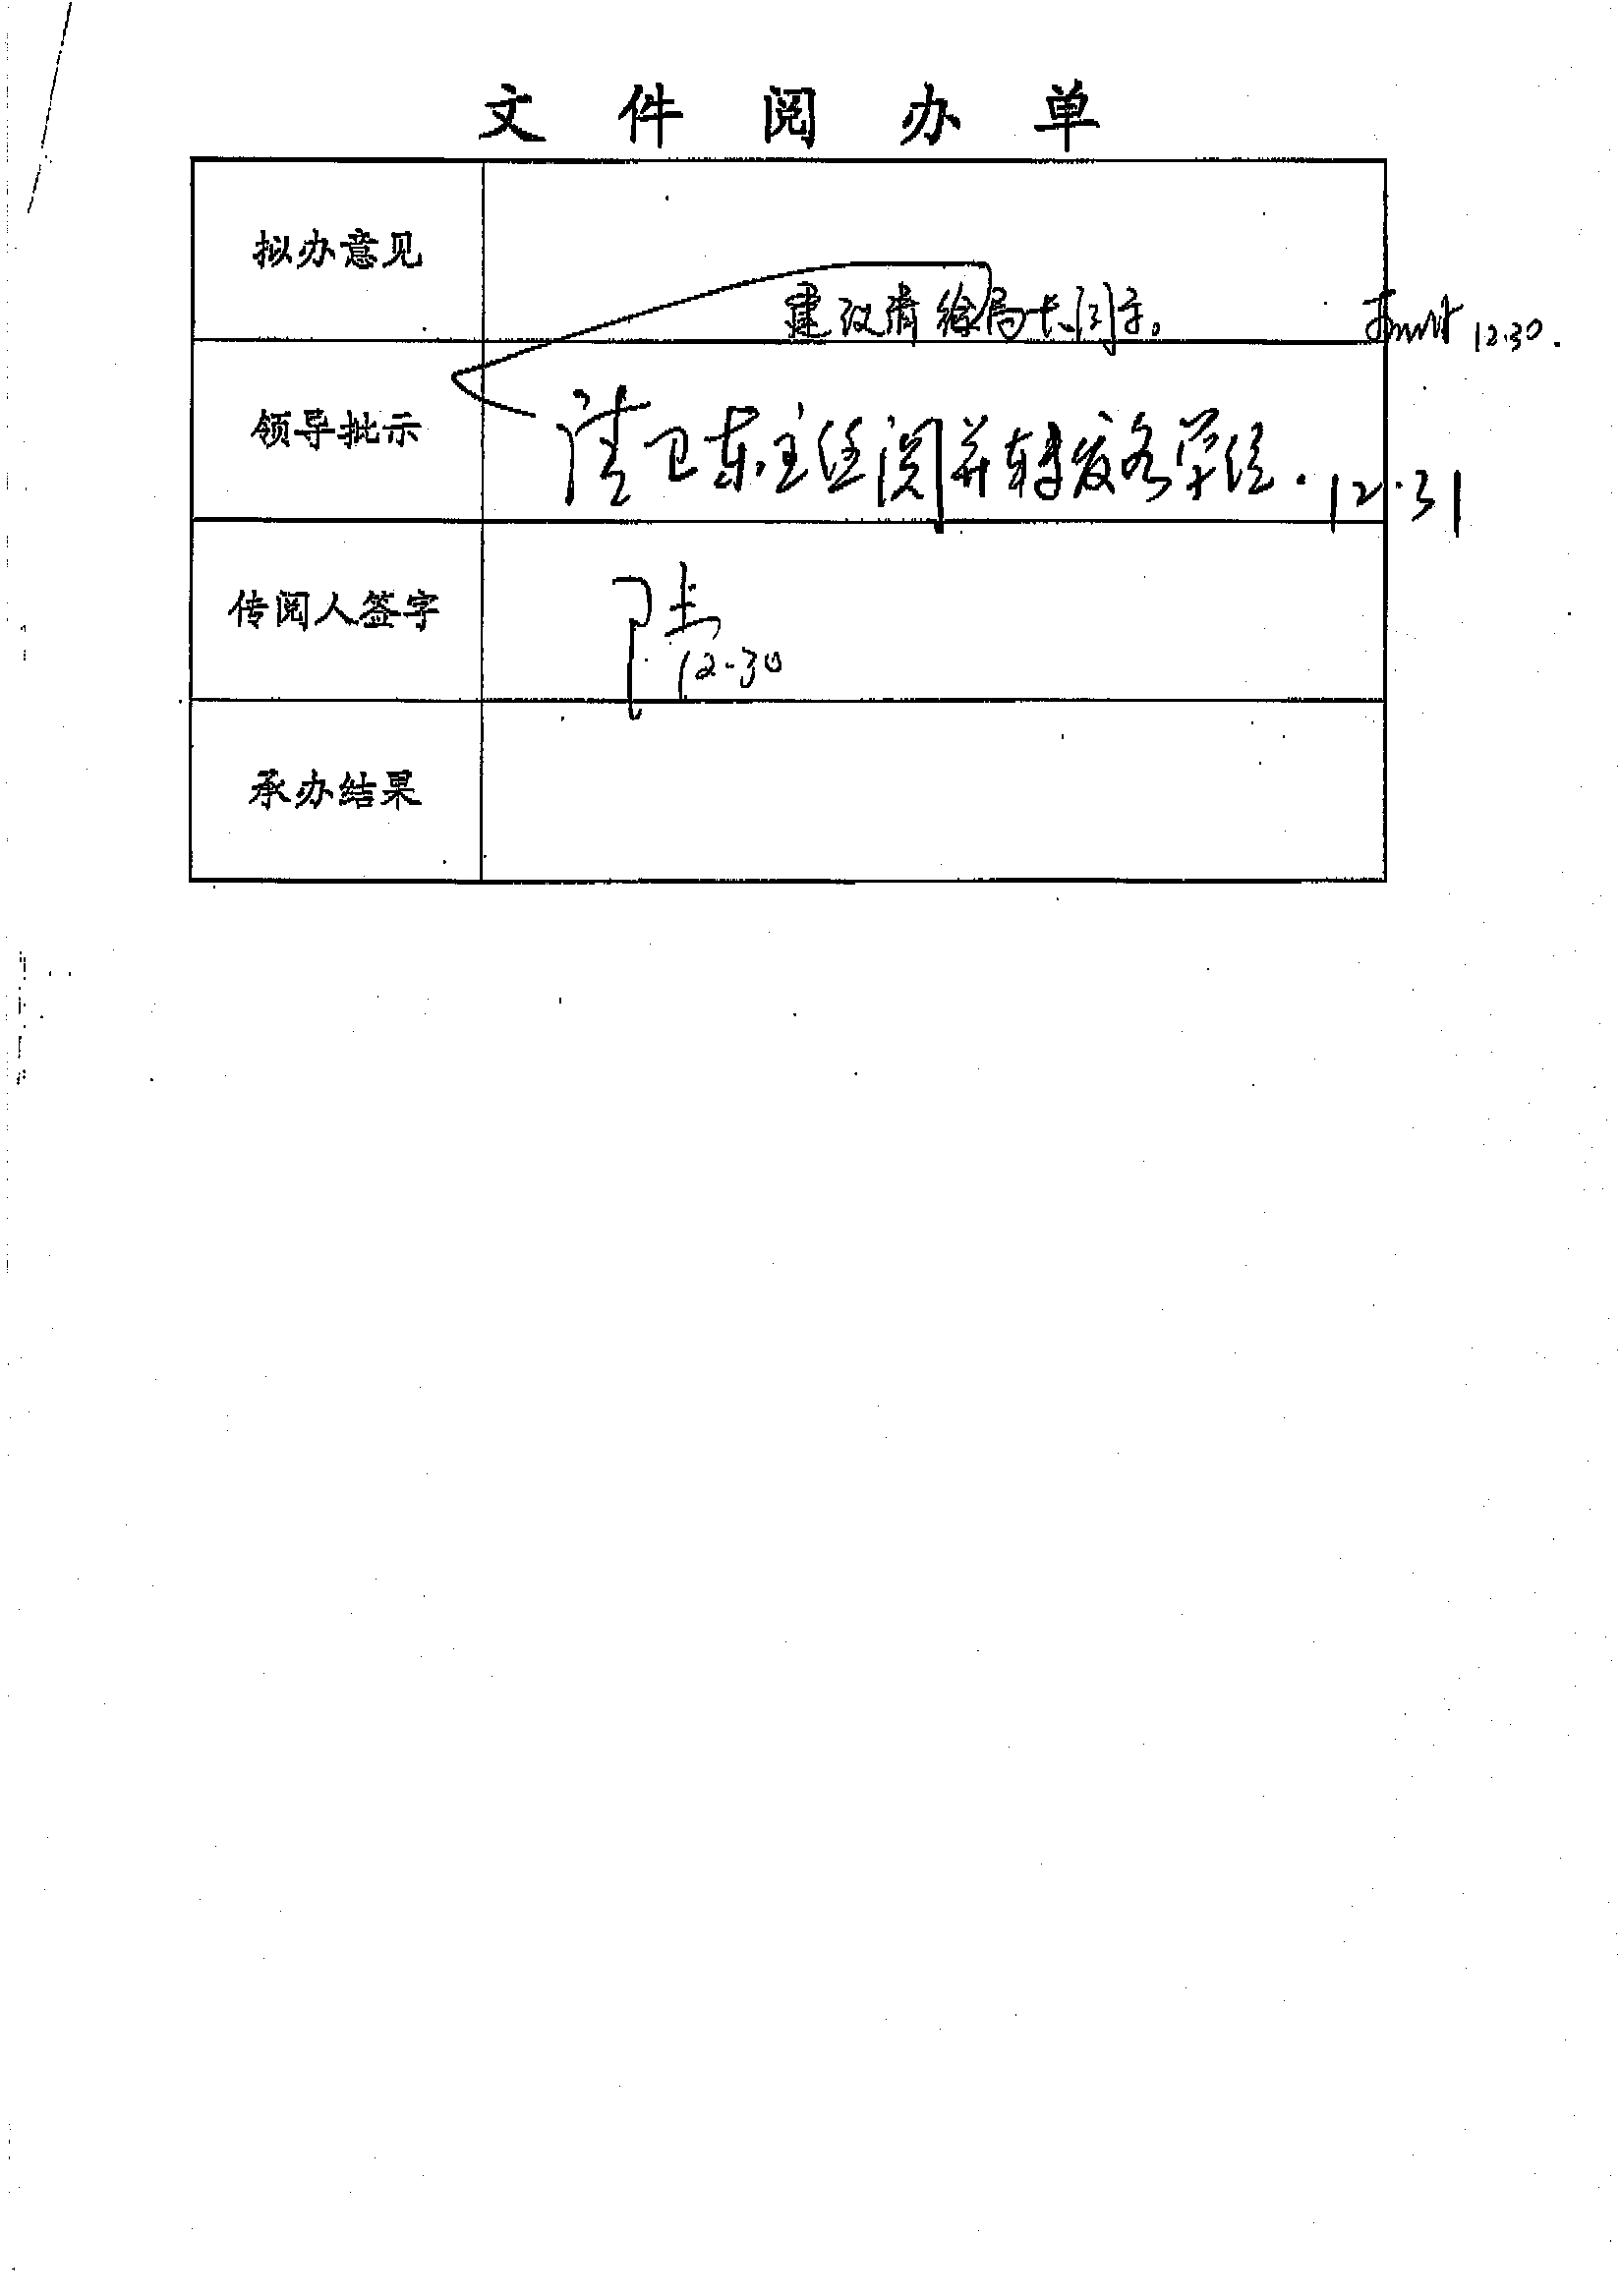 文件阅办单
拟办意见
建议请徐局长阅示。 12.30.
领导批示
请卫东主任阅并转发各单位.12.31
传阅人签字
12.30
承办结果